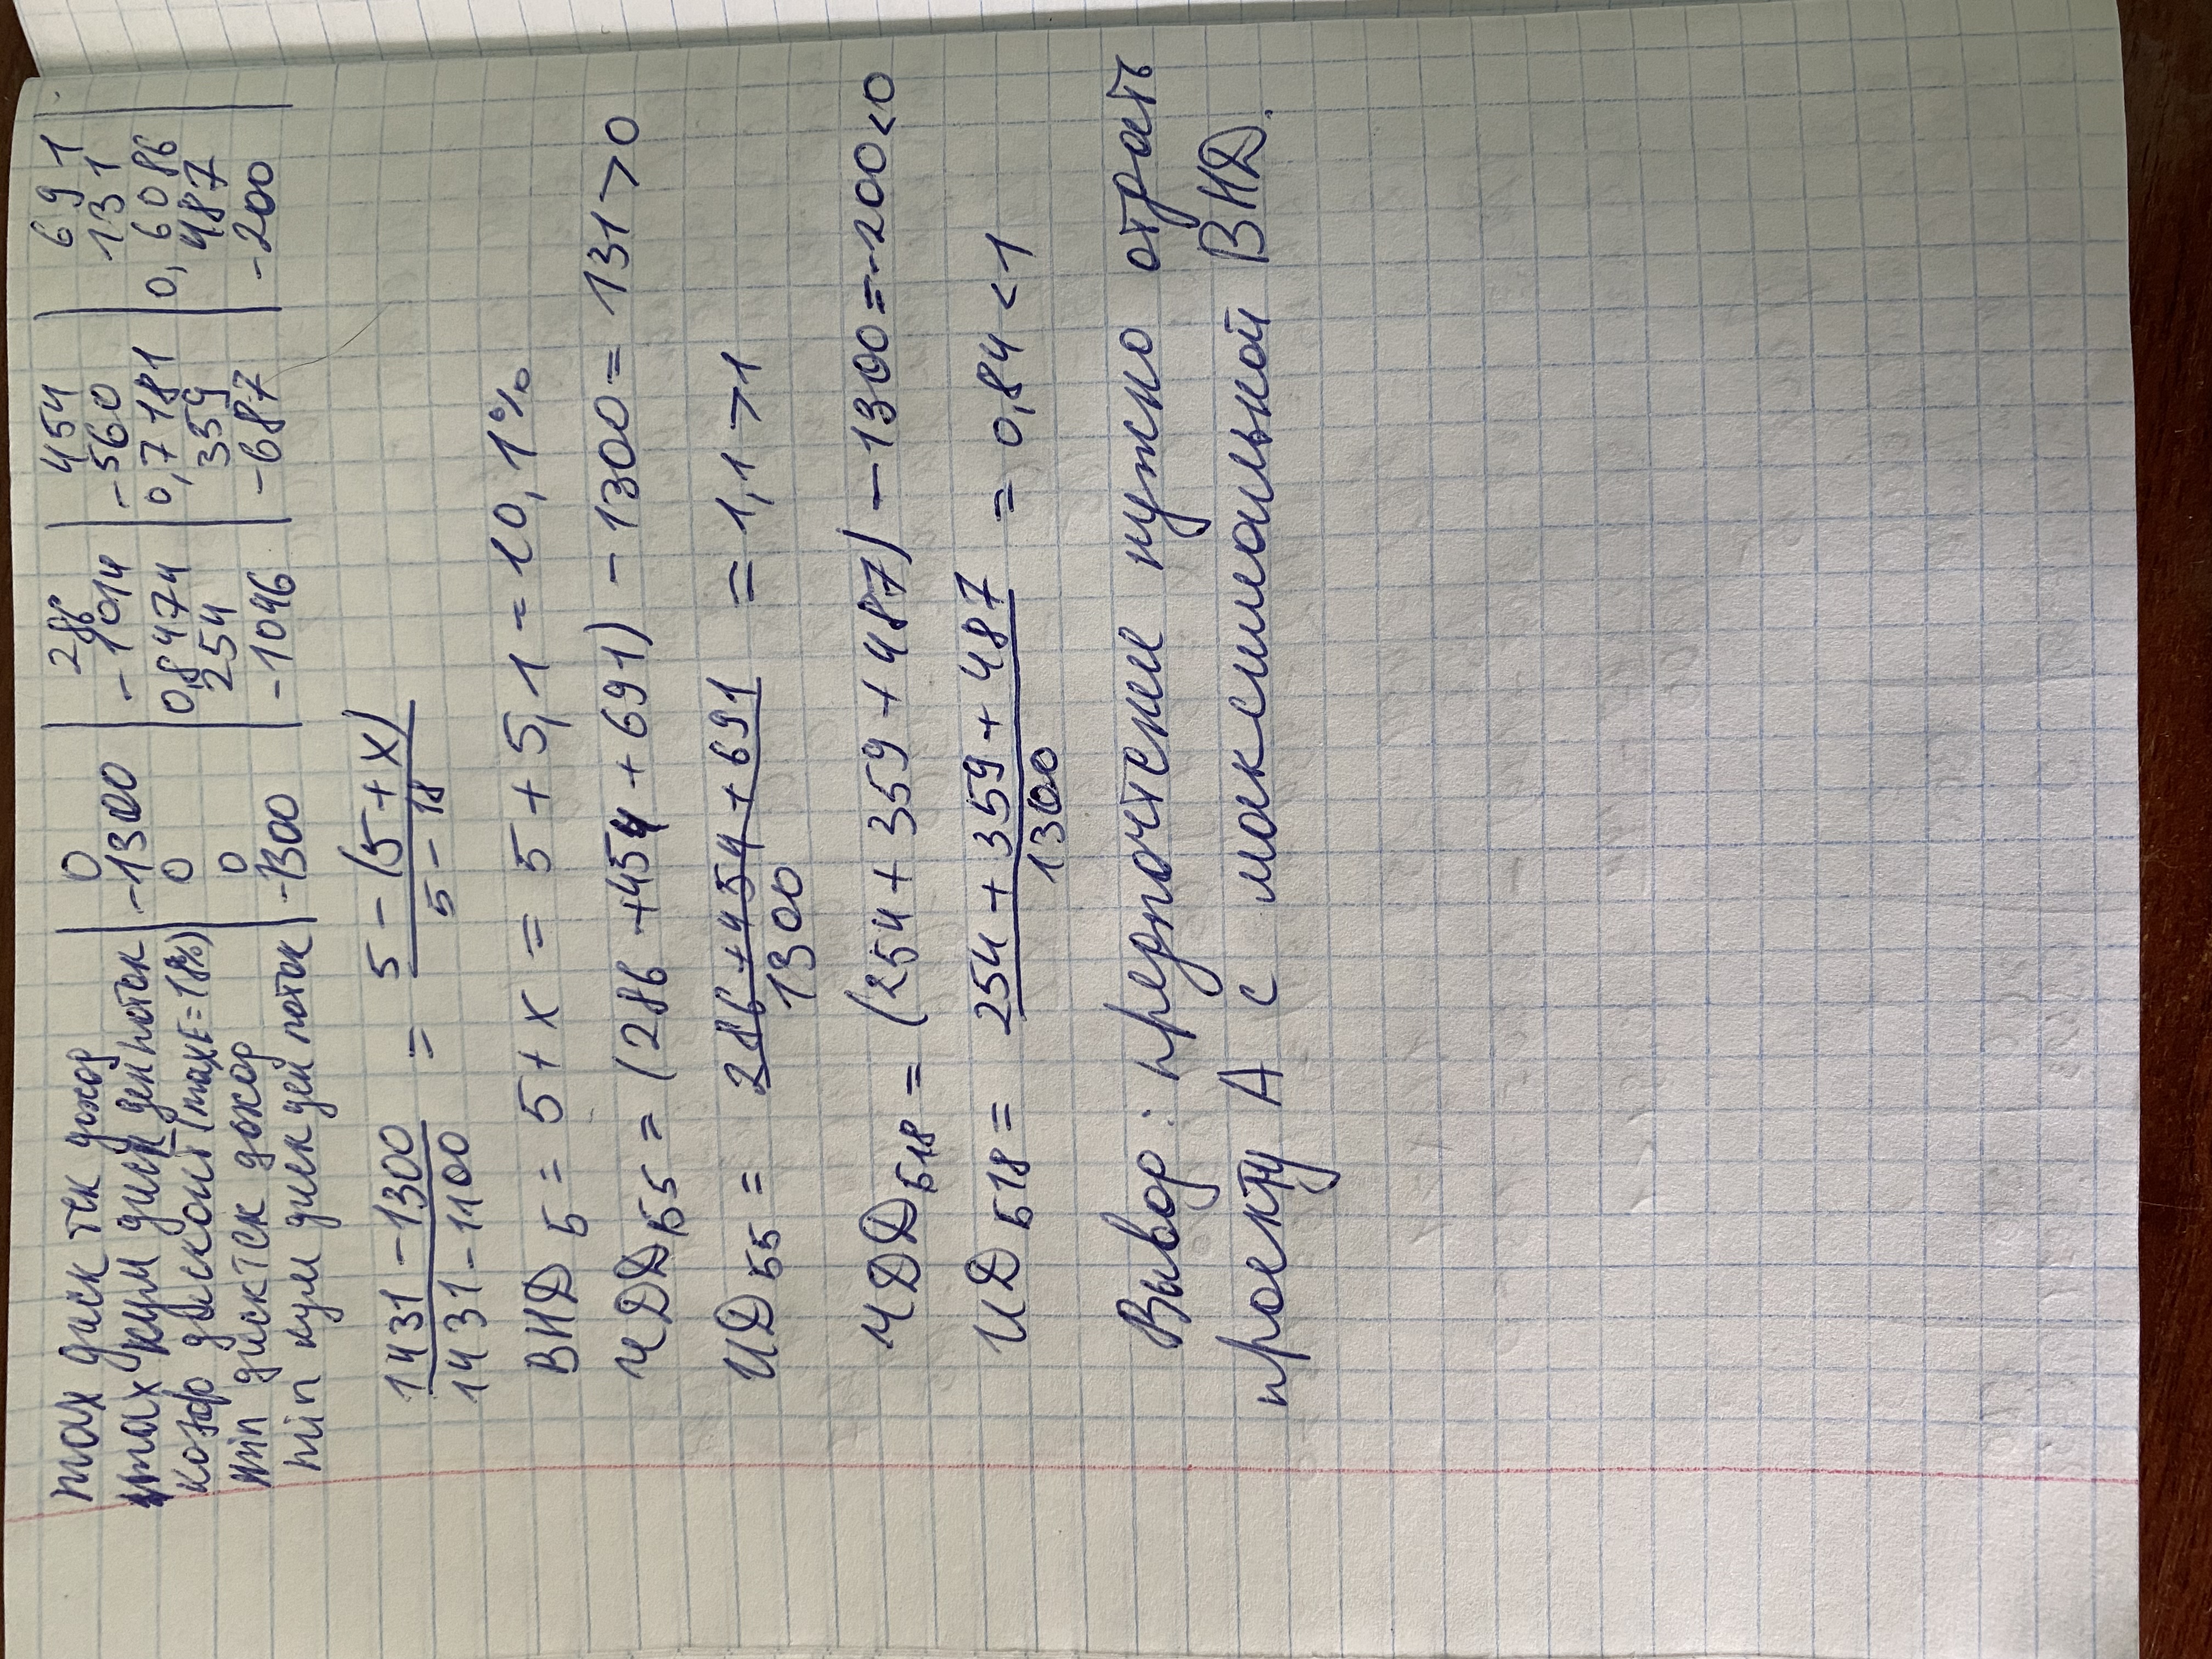 max диск тек доход | 0 | 286 | 454 | 691
max кум диск ден поток | -1300 | -1014 | -560 | 131
коэф дисконт (max E = 18%) | 0 | 0,8474 | 0,7181 | 0,6086
min диск тек доход | 0 | 254 | 359 | 487
min кум диск ден поток | -1300 | -1046 | -687 | -200
1431 - 1300 / 1431 - 1100 = 5 - (5 + x) / 5 - 18
ВНД Б = 5 + x = 5 + 5,1 = 10,1%
ЧДД Б5 = (286 + 454 + 691) - 1300 = 131 > 0
ИД Б5 = 286 + 454 + 691 / 1300 = 1,1 > 1
ЧДД Б18 = (254 + 359 + 487) - 1300 = -200 < 0
ИД Б18 = 254 + 359 + 487 / 1300 = 0,84 < 1
Вывод: предпочтение нужно отдать
проекту А с максимальной ВНД.